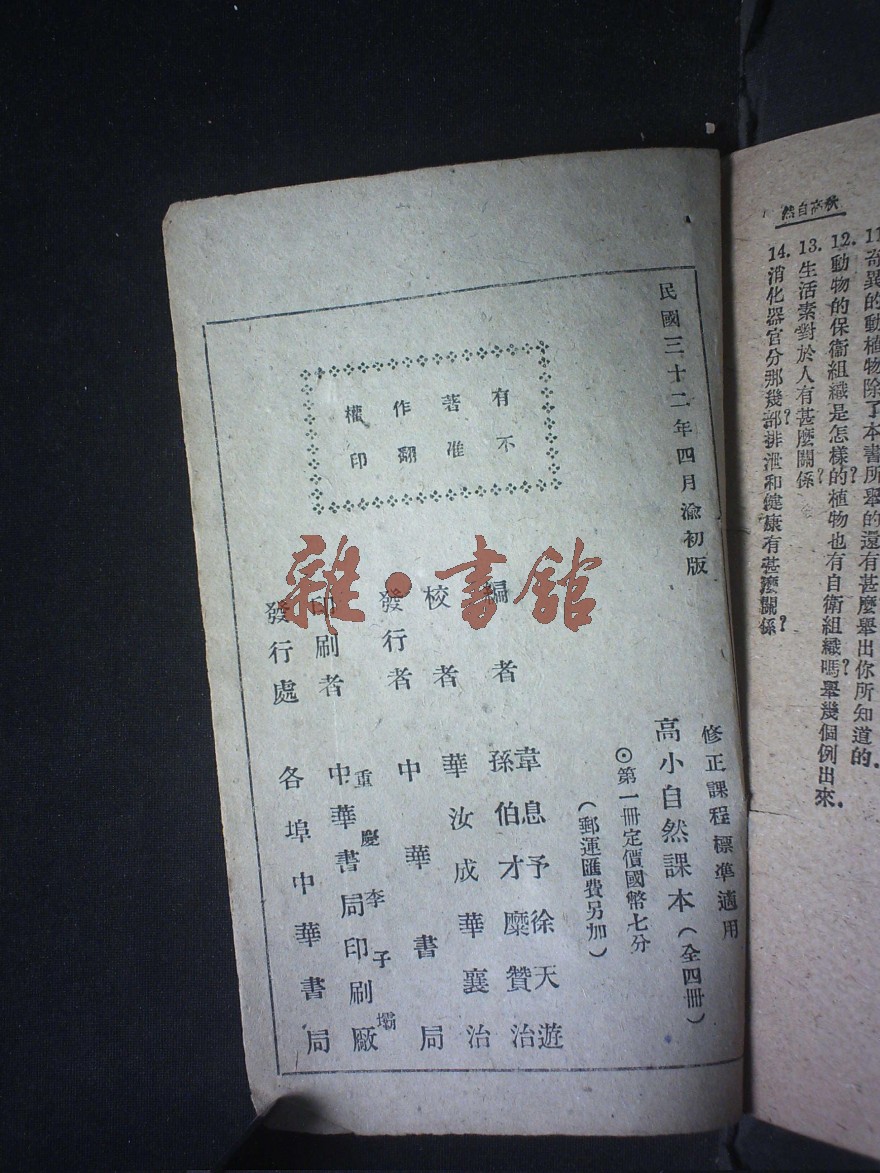 秋高自然
11.奇異的動植物除了本書所舉的還有甚麼舉出你所知道的.
12.動物的保衞組織是怎樣的?植物也有自衞組織嗎?舉幾個例出來.
13.生活素對於人有甚麼關係?
14.消化器官分那幾部?排泄和健康有甚麼關係?
民國三十二年四月渝初版
有著作權
不准翻印
修正課程標準適用
高小自然課本(全四冊)
⊙第一冊定價國幣七分
(郵運匯費另加)
編者
韋息予徐天遊
孫伯才糜贊治
校者 華汝成華襄治
發行者 中華書局
重慶李子壩
印刷者 中華書局印刷廠
發行處 各埠中華書局
雜·書館